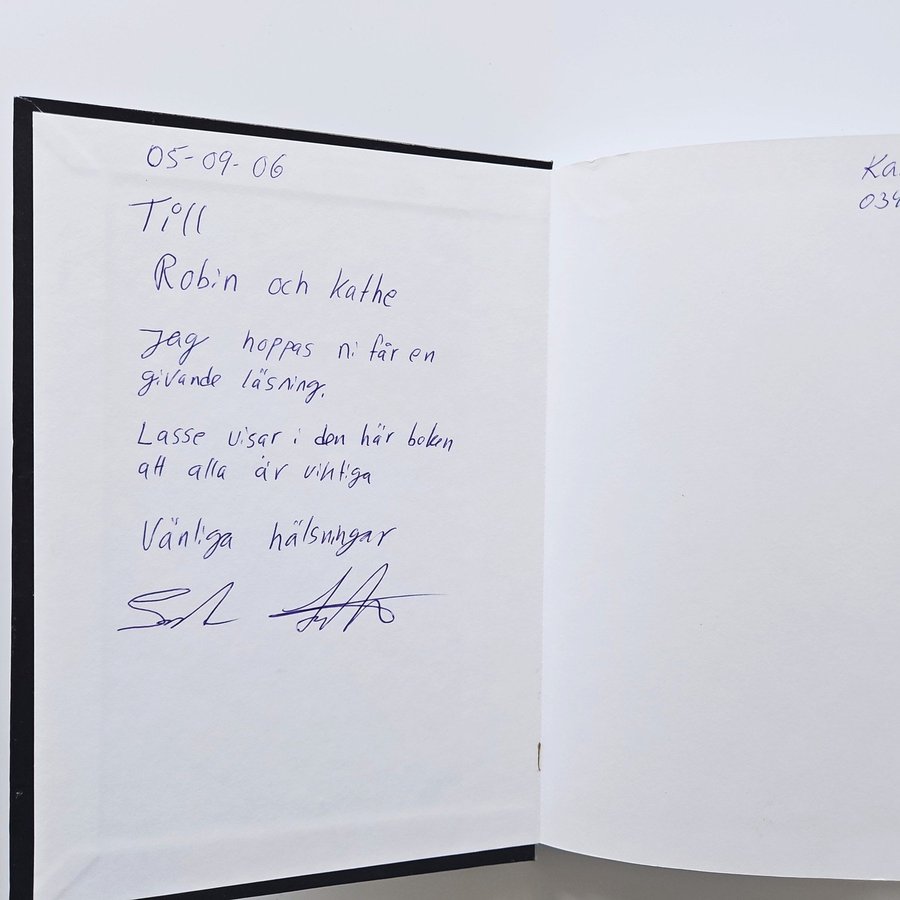 05-09-06
Till
Robin och Kathe
Jag hoppas ni får en
givande läsning.
Lasse visar i den här boken
att alla är viktiga
Vänliga hälsningar
Ka
034